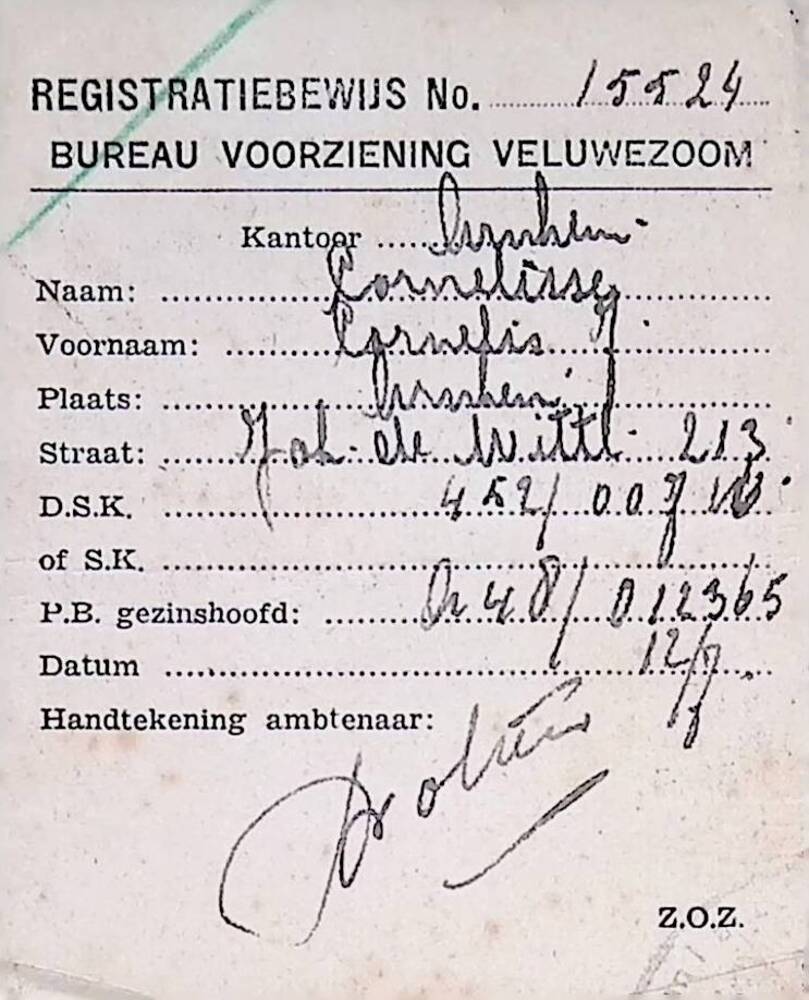 REGISTRATIEBEWIJS No. 15524
BUREAU VOORZIENING VELUWEZOOM
Kantoor Arnhem
Naam: Cornelisse
Voornaam: Cornelis J.
Plaats: Arnhem
Straat: Joh. de Wittl. 213
D.S.K. 452/007
of S.K.
P.B. gezinshoofd: A 48/012365
Datum 12/7
Handtekening ambtenaar:
Z.O.Z.